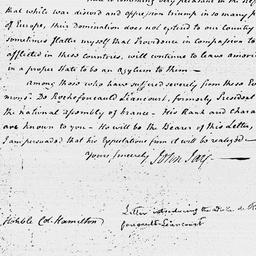 that while war discord and oppression triumph in so many p
of Europe, their Domination does not extend to our Country
sometimes flatter myself that Providence in compassion to
afflicted in these countries, will continue to leave america
in a proper State to be an asylum to them—
among those who have suffered severely from these Ev
mons.r De Rochefoucauld Liancourt, formerly President
the national assembly of france - His Rank and Chara
are known to you - He will be the Bearer of this Letter,
I am persuaded that his Expectations from it will be realized—
Yours sincerely John Jay
Honble Col. Hamilton
Letter introducing the Duke de R
foucault-Liancourt